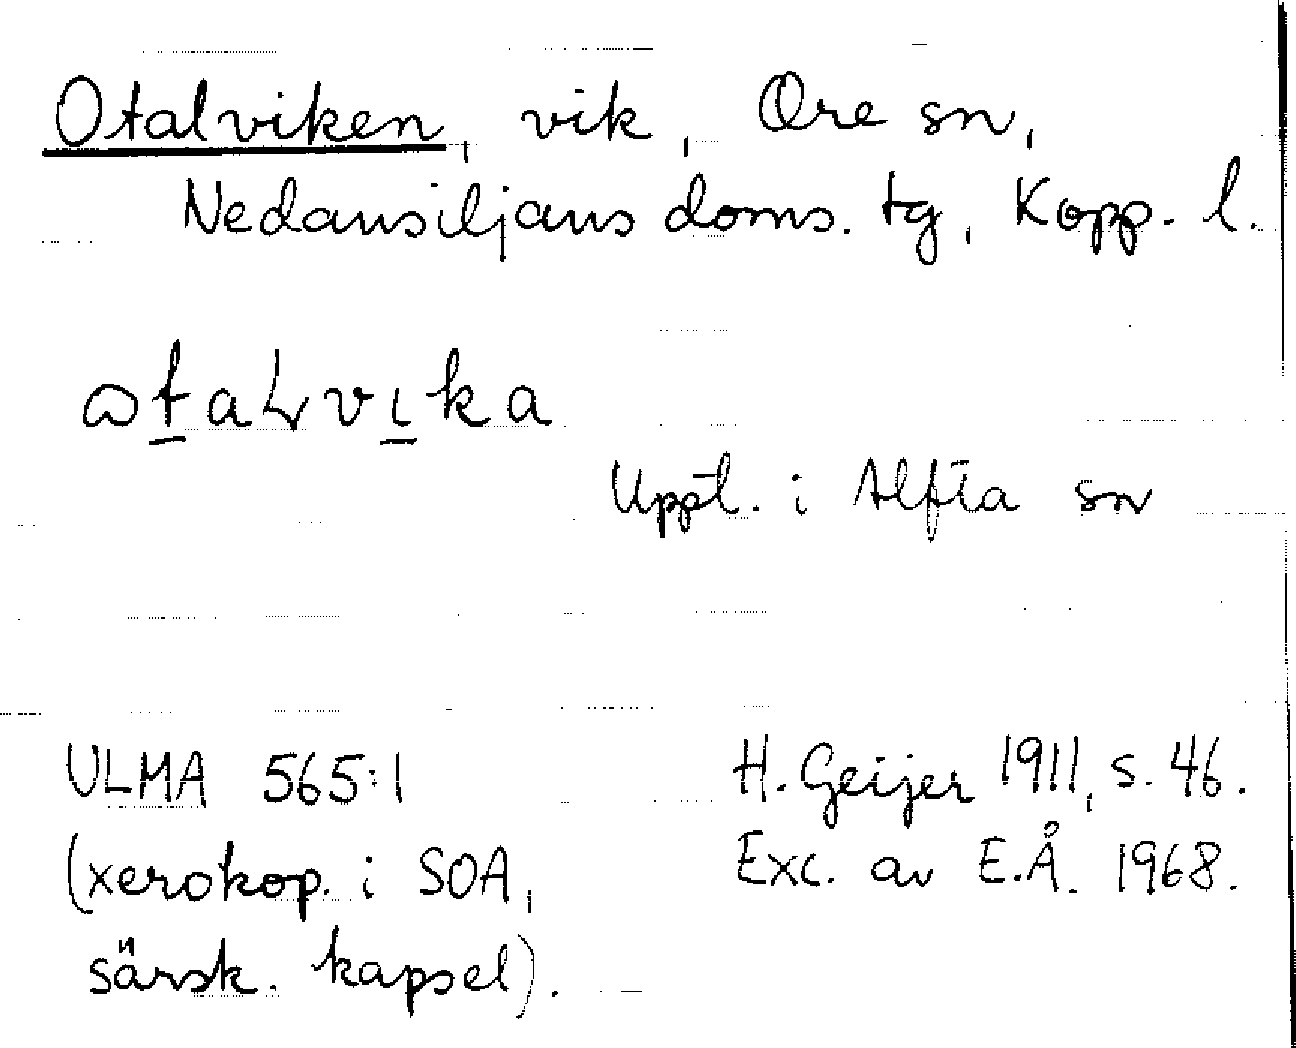 Otalviken, vik, Ore sn,
Nedansiljans doms. tg, Kopp. l.
Uppt. i Alfta sn
ULMA 565:1
H. Geijer 1911, s. 46.
(xerokop. i SOA,
Exc. av E.Å. 1968.
särsk. kapsel).